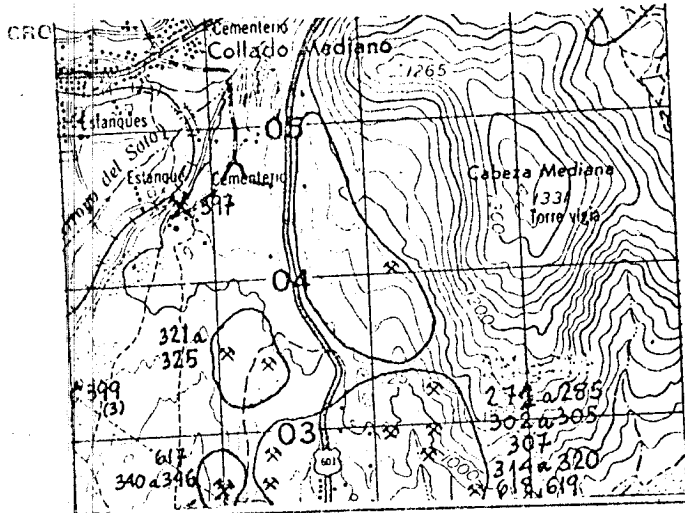 CRO
Cementerio
Collado Mediano
1265
Estanques
05
Arroyo del Salo
Estanque
Cementerio
Cabeza Mediana
1331
Torre vigía
397
04
321 a
325
399
(3)
274 a 285
302 a 305
307
314 a 320
618, 619
03
601
1000
617
340 a 346